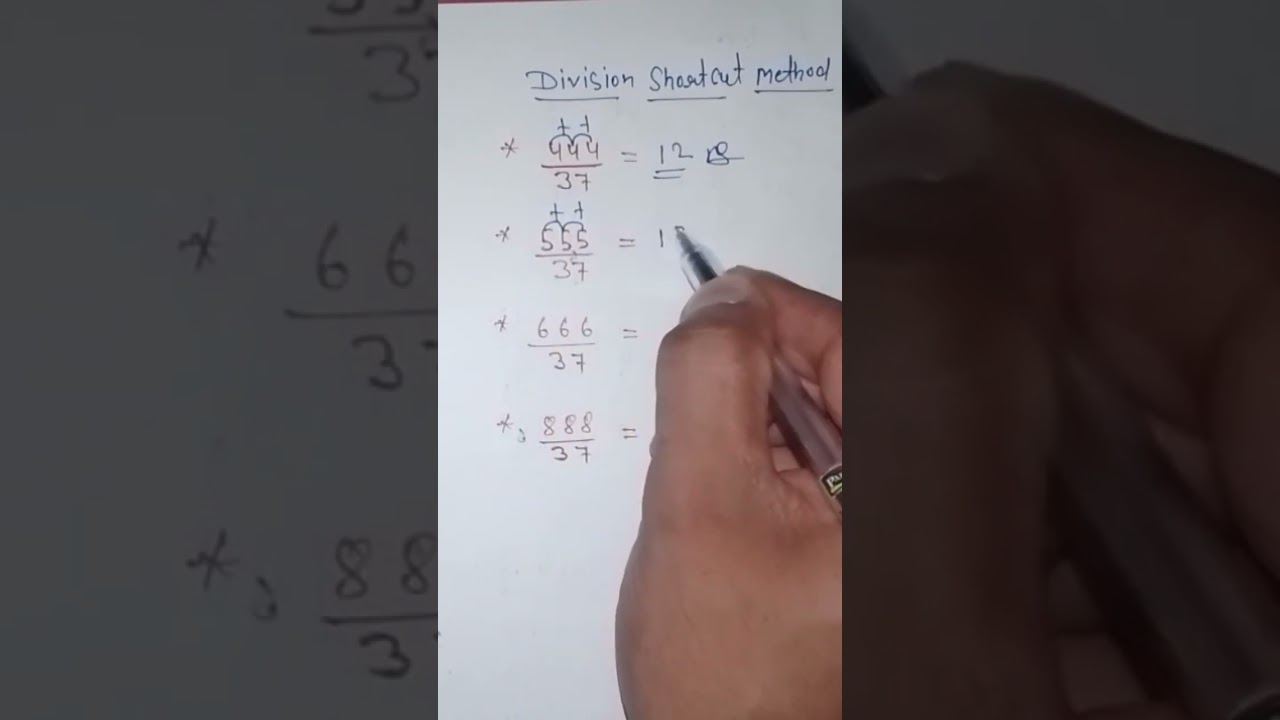 Division Shortcut Method
+ +
* 444 = 12
37
+ +
* 555 = 1
37
* 666 =
37
*, 888 =
37